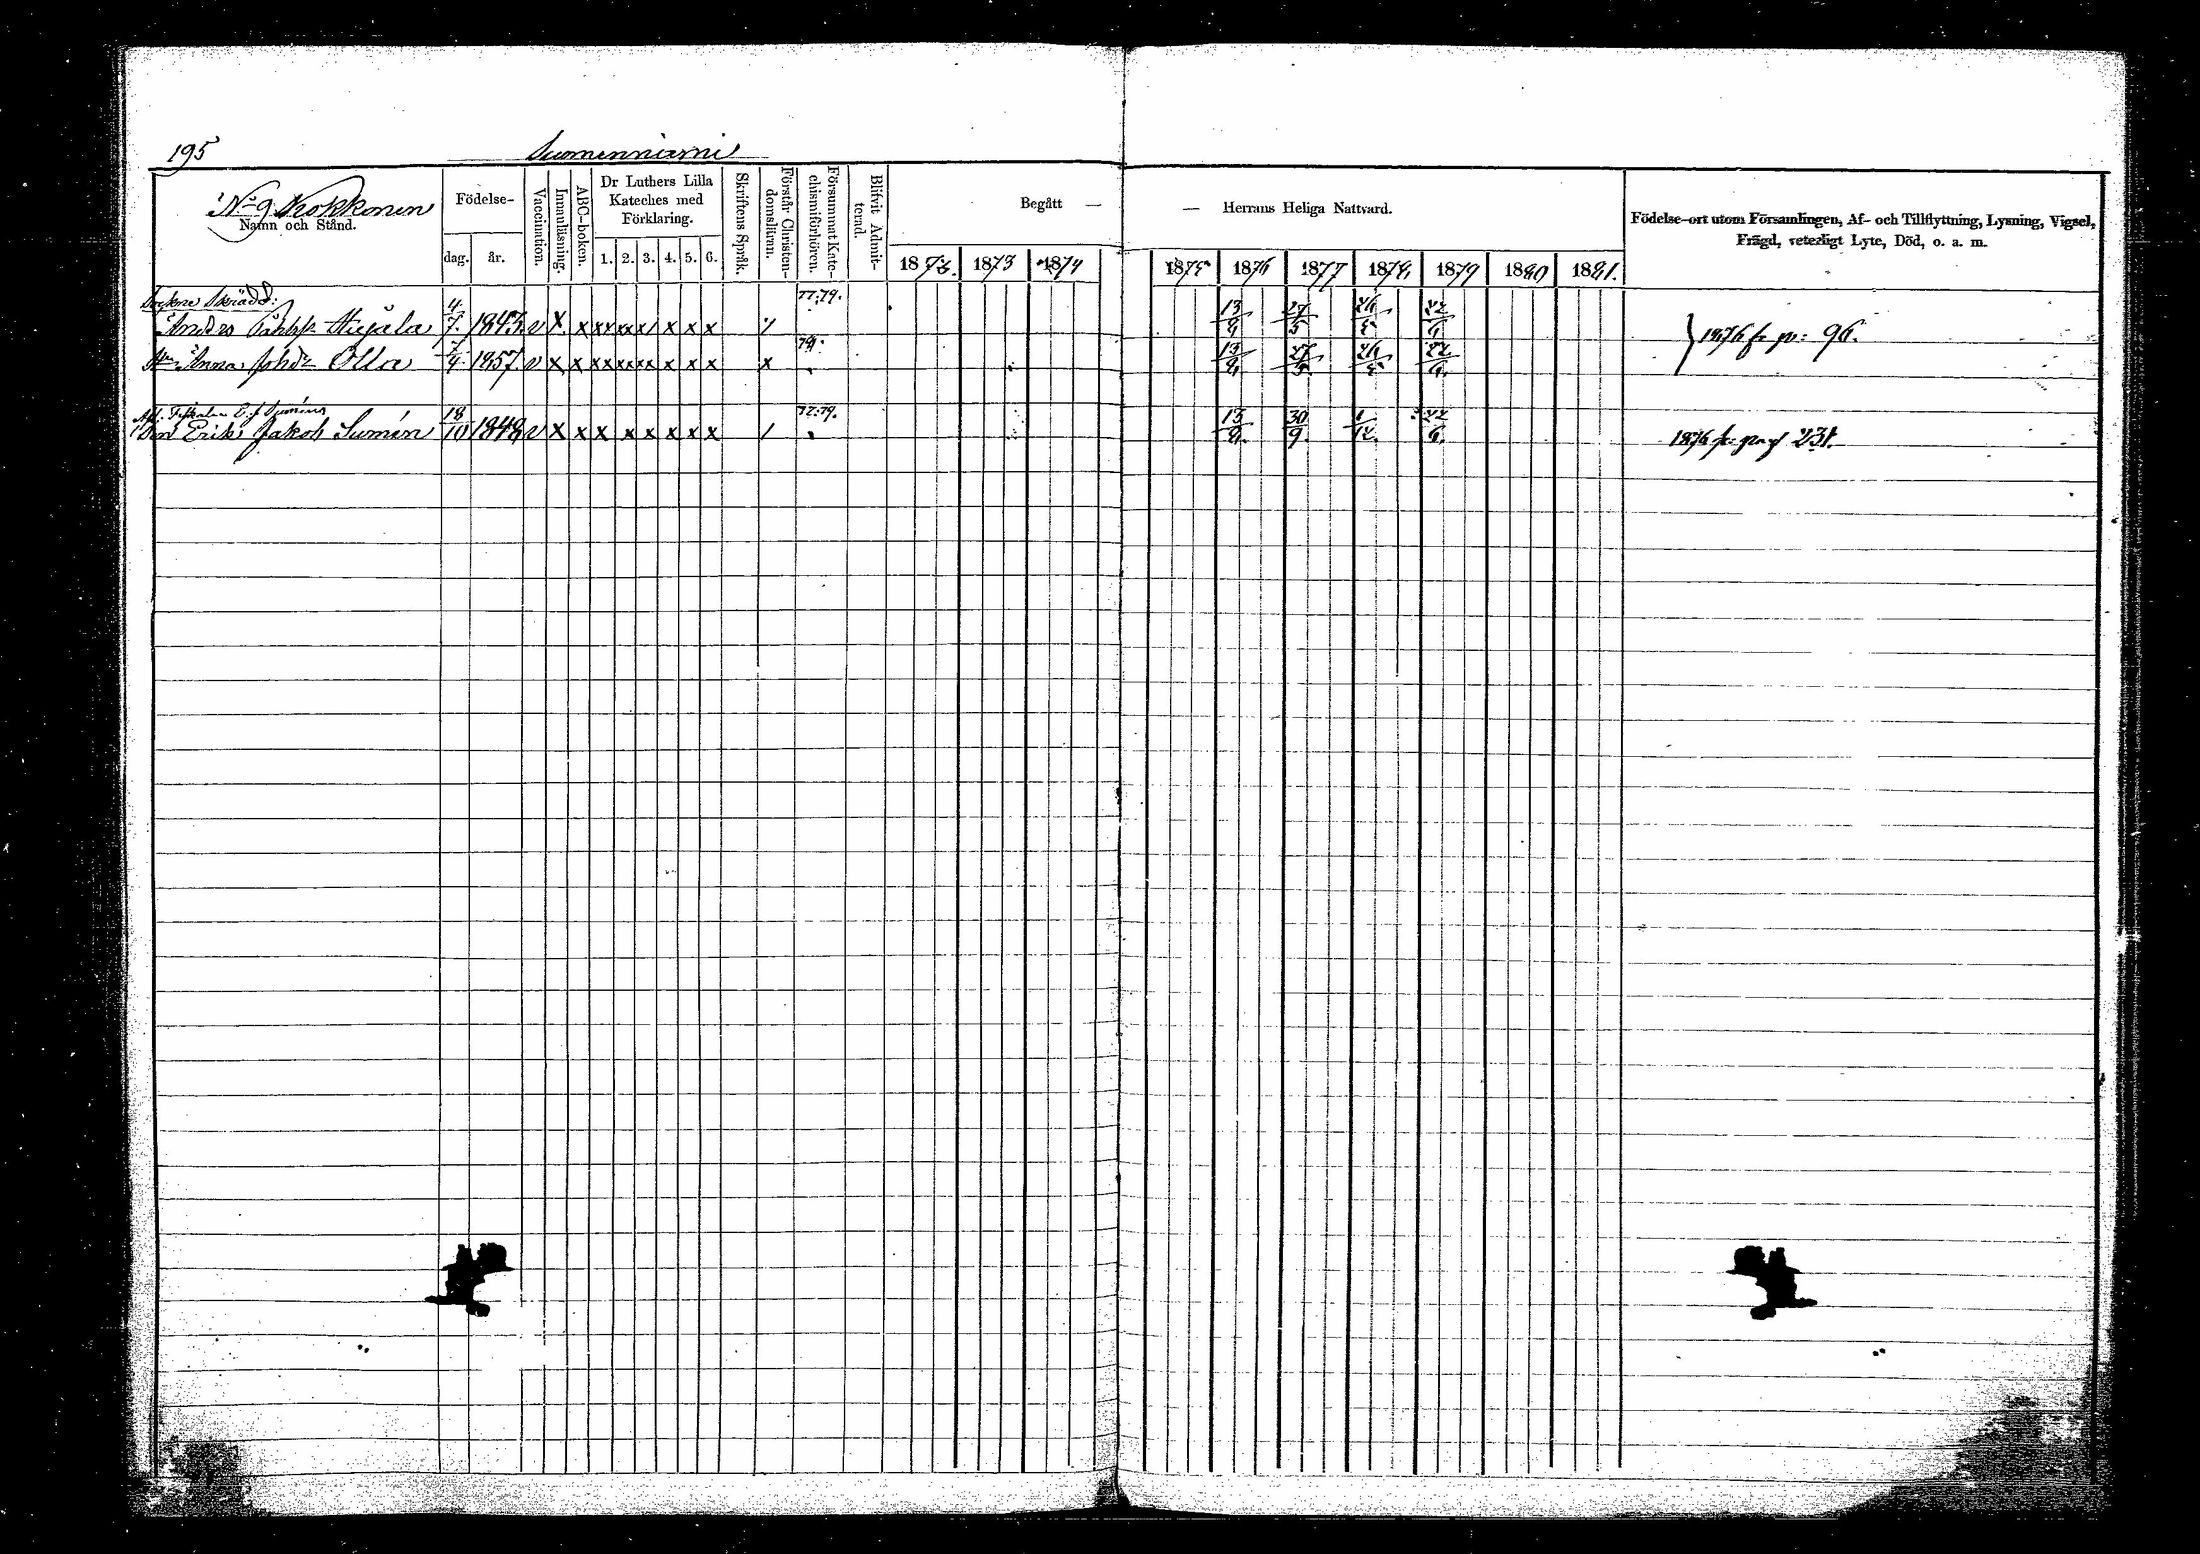 195
Suomenniemi
No 9 Kokkonen
Namn och Stånd.
Födelse-
dag. år.
Vaccination.
Innanläsning.
ABC-boken.
Dr Luthers Lilla
Kateches med
Förklaring.
1. 2. 3. 4. 5. 6.
Skriftens Språk.
Förstår Christen-
domsläran.
Försummat Kate-
chismiförhören.
Blifvit Admit-
terad.
Begått —
1873 1874
— Herrans Heliga Nattvard.
1875 1876 1877 1878 1879 1880 1881.
Födelse-ort utom Församlingen, Af- och Tillflyttning, Lysning, Vigsel,
Frägd, veterligt Lyte, Död, o. a. m.
Sockne Skrädd:
77,79.
Anders 4/7. 1843 v x x x x x x x x 13/8 27/5 26/5 22/6
} 1876 fr. p: 96.
79.
Anna Johdr Olla 7/4. 1857 v x x x x x x x x x 13/8 27/5 26/5 22/6
77.79.
Erik Jakob Sumén 18/10 1848 v x x x x x x x x / 13/8. 30/9. 1/12. 22/6.
1876 fr. pag 231.